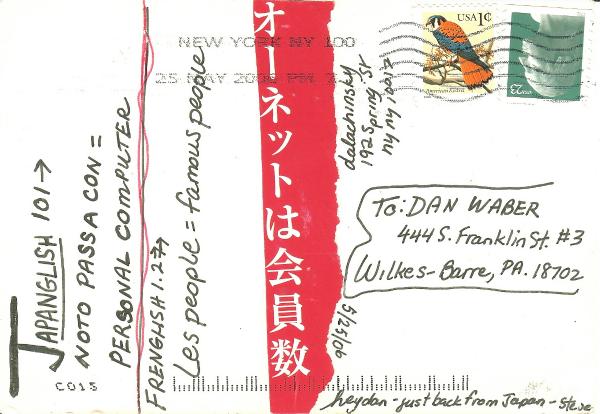 JAPANGLISH 101→
NOTO PASSA CON =
PERSONAL COMPUTER
FRENGLISH 1.2
Les people = famous people
オーネットは会員数
NEW YORK NY 100
25 MAY 2006 PM
USA 1¢
American Kestrel
dalachinsky
192 Spring St
ny ny 10012
TO: DAN WABER
444 S. Franklin St. #3
Wilkes-Barre, PA. 18702
5/25/06
C015
hey dan - just back from Japan - Steve